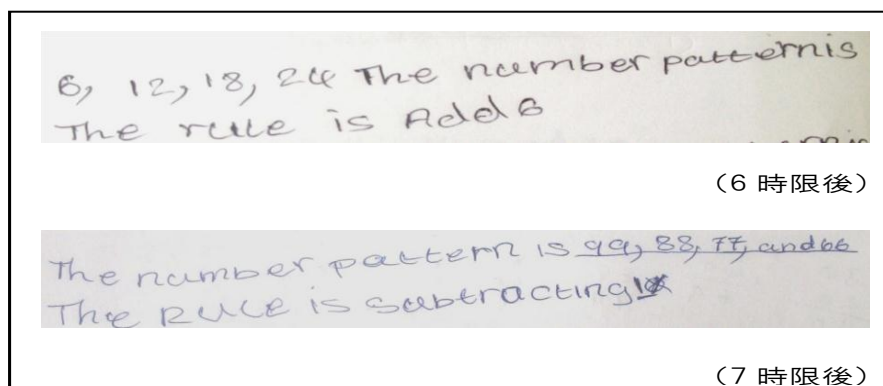 6, 12, 18, 24 The number pattern is
The rule is Add 6
（6 時限後）
The number pattern is 99, 88, 77, and 66
The RULE is subtracting
（7 時限後）